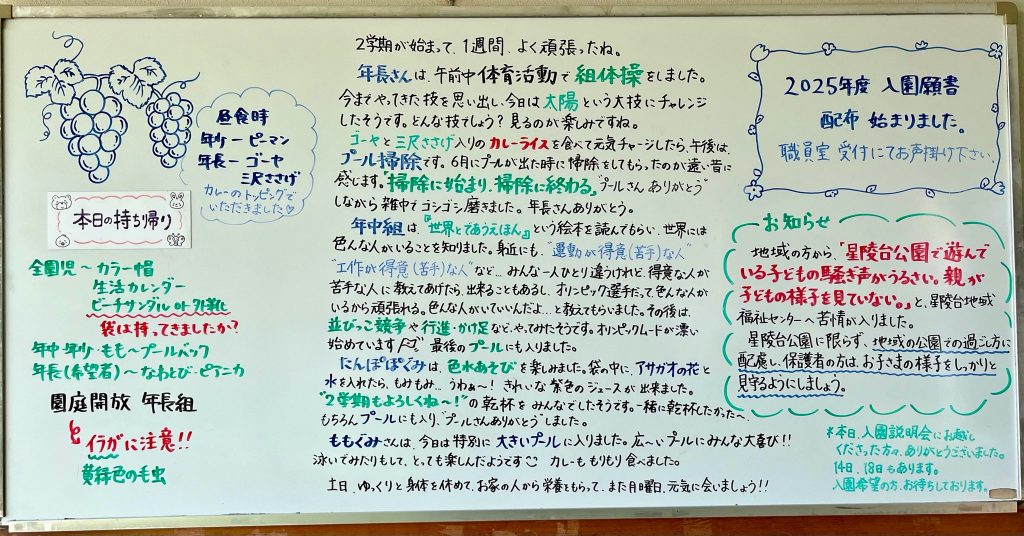 昼食時
年少ーピーマン
年長ーゴーヤ
三沢ささげ
カレーのトッピングで
いただきました♡
本日の持ち帰り
全園児～カラー帽
生活カレンダー
ビーチサンダル or 外靴
袋は持ってきましたか?
年中・年少・もも～プールバック
年長(希望者)～なわとび・ピアニカ
園庭開放 年長組
イラガに注意!!
黄緑色の毛虫
2学期が始まって、1週間、よく頑張ったね。
年長さんは、午前中体育活動で組体操をしました。
今までやってきた技を思い出し、今日は太陽という大技にチャレンジ
したそうです。どんな技でしょう?見るのが楽しみですね。
ゴーヤと三沢ささげ入りのカレーライスを食べて元気チャージしたら、午後は、
プール掃除です。6月にプールが出た時に掃除をしてもらったのが遠い昔に
感じます。"掃除に始まり、掃除に終わる。"プールさんありがとう"
しながら雑巾でゴシゴシ磨きました。年長さんありがとう。
年中組は、『世界とであうえほん』という絵本を読んでもらい、世界には
色んな人がいることを知りました。身近にも、"運動が得意(苦手)な人"
"工作が得意(苦手)な人"など…みんな一人ひとり違うけれど、得意な人が
苦手な人に教えてあげたら、出来ることもあるし、オリンピック選手だって、色んな人が
いるから頑張れる。色んな人がいていいんだよ…と教えてもらいました。その後は、
並びっこ競争や行進・かけ足など、やってみたそうです。オリンピックムードが漂い
始めています 最後のプールにも入りました。
たんぽぽぐみは、色水あそびを楽しみました。袋の中に、アサガオの花と
水を入れたら、もみもみ…うわぁ～!きれいな紫色のジュースが出来ました。
"2学期もよろしくね～!"の乾杯をみんなでしたそうです。一緒に乾杯したかった～。
もちろんプールにも入り、"プールさんありがとう"しました。
ももぐみさんは、今日は特別に大きいプールに入りました。広～いプールにみんな大喜び!!
泳いでみたりもして、とっても楽しんだようです カレーももりもり食べました。
土日、ゆっくりと身体を休めて、お家の人から栄養をもらって、また月曜日、元気に会いましょう!!
2025年度 入園願書
配布 始まりました。
職員室 受付にてお声掛け下さい。
お知らせ
地域の方から、「星陵台公園で遊んで
いる子どもの騒ぎ声がうるさい。親が
子どもの様子を見ていない。」と、星陵台地域
福祉センターへ苦情が入りました。
星陵台公園に限らず、地域の公園での過ごし方に
配慮し、保護者の方は、お子さまの様子をしっかりと
見守るようにしましょう。
*本日、入園説明会にお越し
くださった方々、ありがとうございました。
14日、18日もあります。
入園希望の方、お待ちしております。